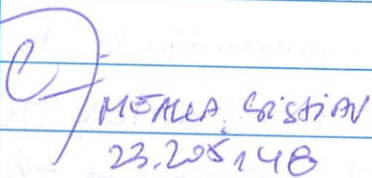 MEALLA CRISTIAN
23.205.148